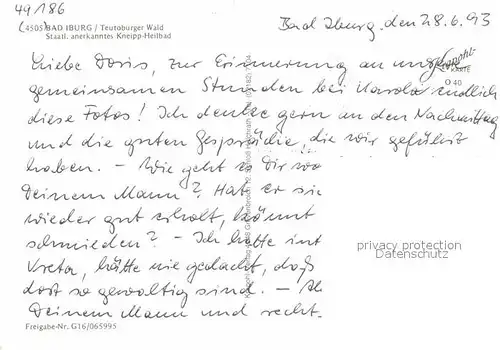 49/186
(4505) BAD IBURG / Teutoburger Wald
Staatl. anerkanntes Kneipp-Heilbad
Bad Iburg, den 28.6.93
Liebe Doris, zur Erinnerung an unsere
gemeinsamen Stunden bei endlich
diese Fotos! Ich denke gern an den Nachmittag
und die guten Gespräche, die wir geführt
haben. – Wie geht es Dir
Deinem Mann? Hat er sie
wieder gut erholt, könnt
schmieden? – Ich hatte
Kreta, hätte nie gedacht, daß
dort so gewaltig sind. –
Deinem Mann und recht
KARTE
O 40
privacy protection
Datenschutz
Freigabe-Nr. G16/065995